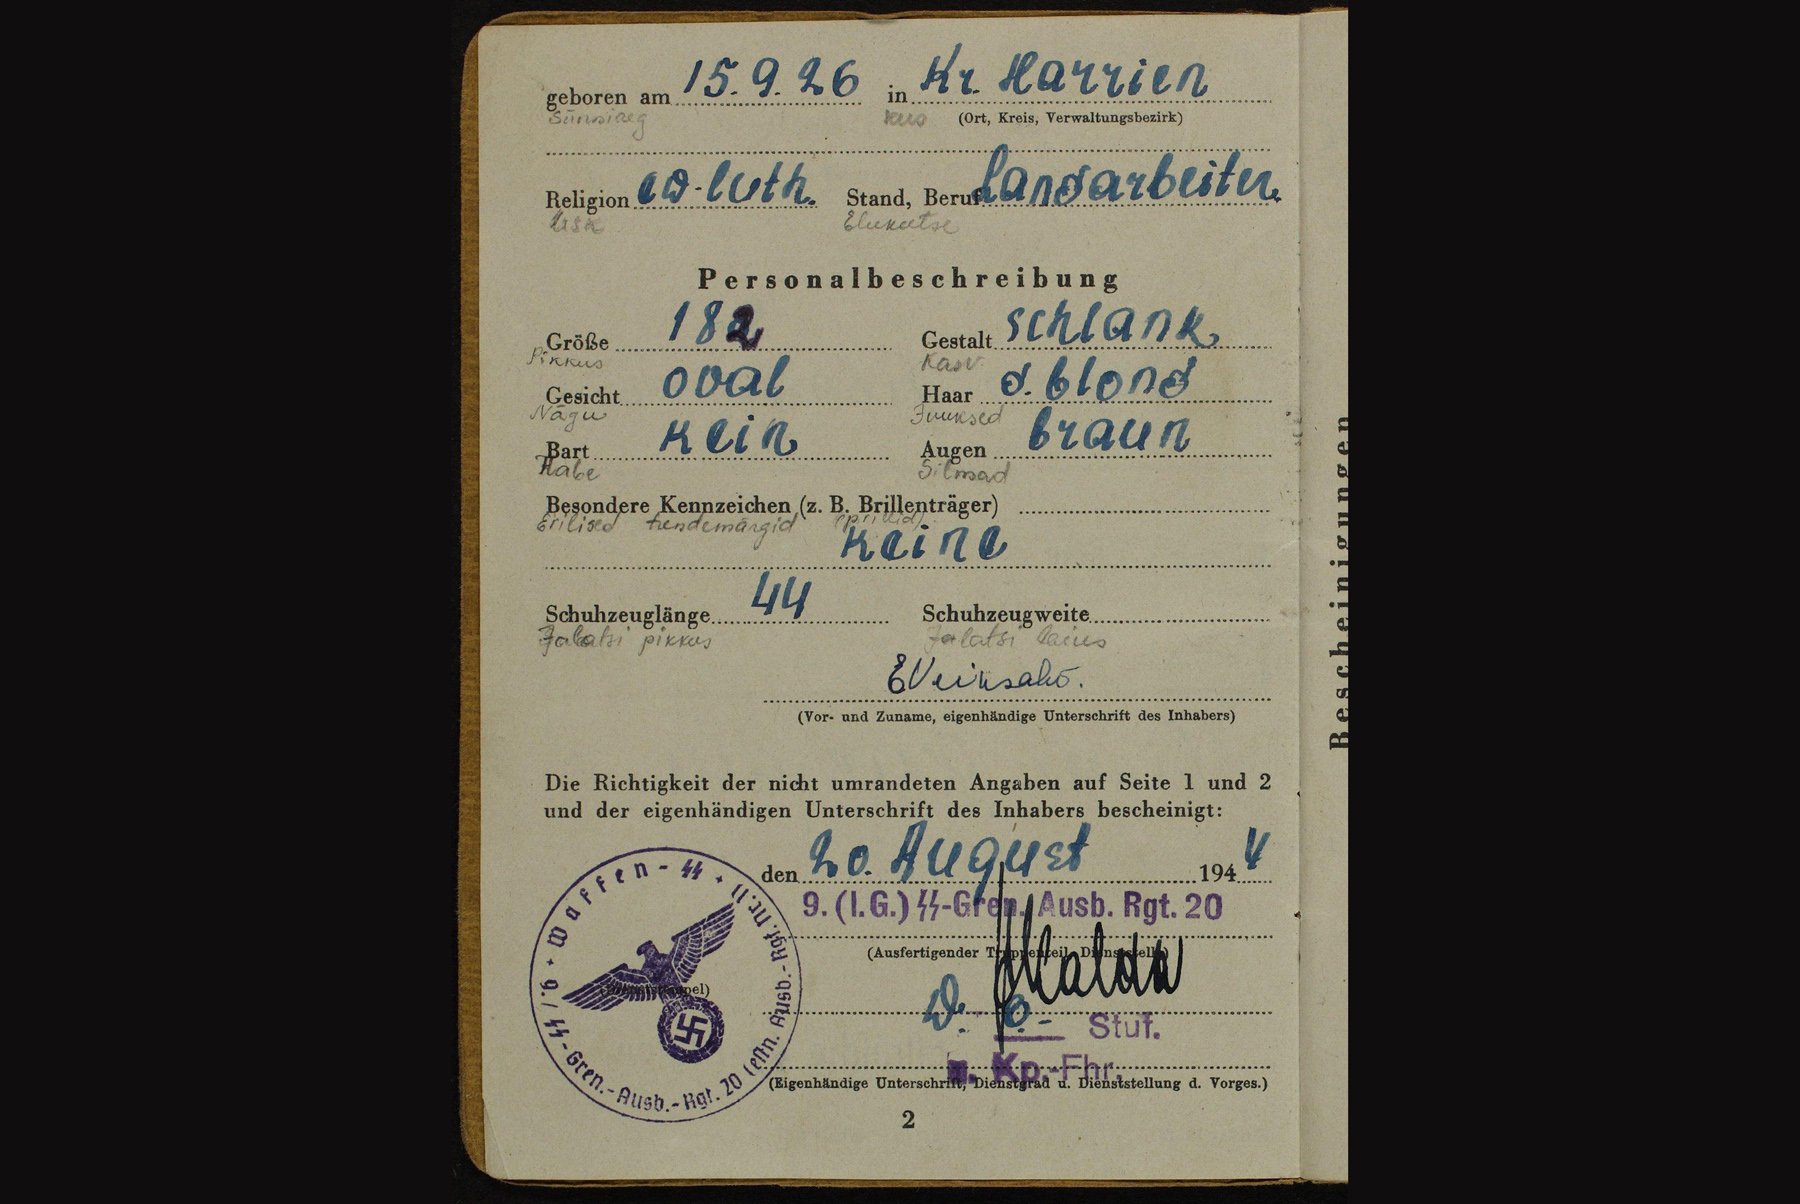 geboren am 15.9.26 in Kr. Harrien
Sünniaeg kus (Ort, Kreis, Verwaltungsbezirk)
Religion ev-luth. Stand, Beruf Landarbeiter
Usk Elukutse
Personalbeschreibung
Größe 182 Gestalt schlank
Pikkus Kasv
Gesicht oval Haar d. blond
Nägu Juuksed
Bart kein Augen braun
Habe Silmad
Besondere Kennzeichen (z. B. Brillenträger)
Erilised tundemärgid (prillid)
keine
Schuhzeuglänge 44 Schuhzeugweite
Jalatsi pikkus Jalatsi laius
(Vor- und Zuname, eigenhändige Unterschrift des Inhabers)
Die Richtigkeit der nicht umrandeten Angaben auf Seite 1 und 2
und der eigenhändigen Unterschrift des Inhabers bescheinigt:
den 20. August 1944
9. (I.G.) SS-Gren. Ausb. Rgt. 20
(Ausfertigender Truppenteil, Dienststelle)
Stuf.
Kp.-Fhr.
(Eigenhändige Unterschrift, Dienstgrad u. Dienststellung d. Vorges.)
Waffen-SS
9./SS-Gren.-Ausb.-Rgt. 20 (estn. Ausb.-Rgt. Nr. 1)
(Dienststempel)
2
Bescheinigungen